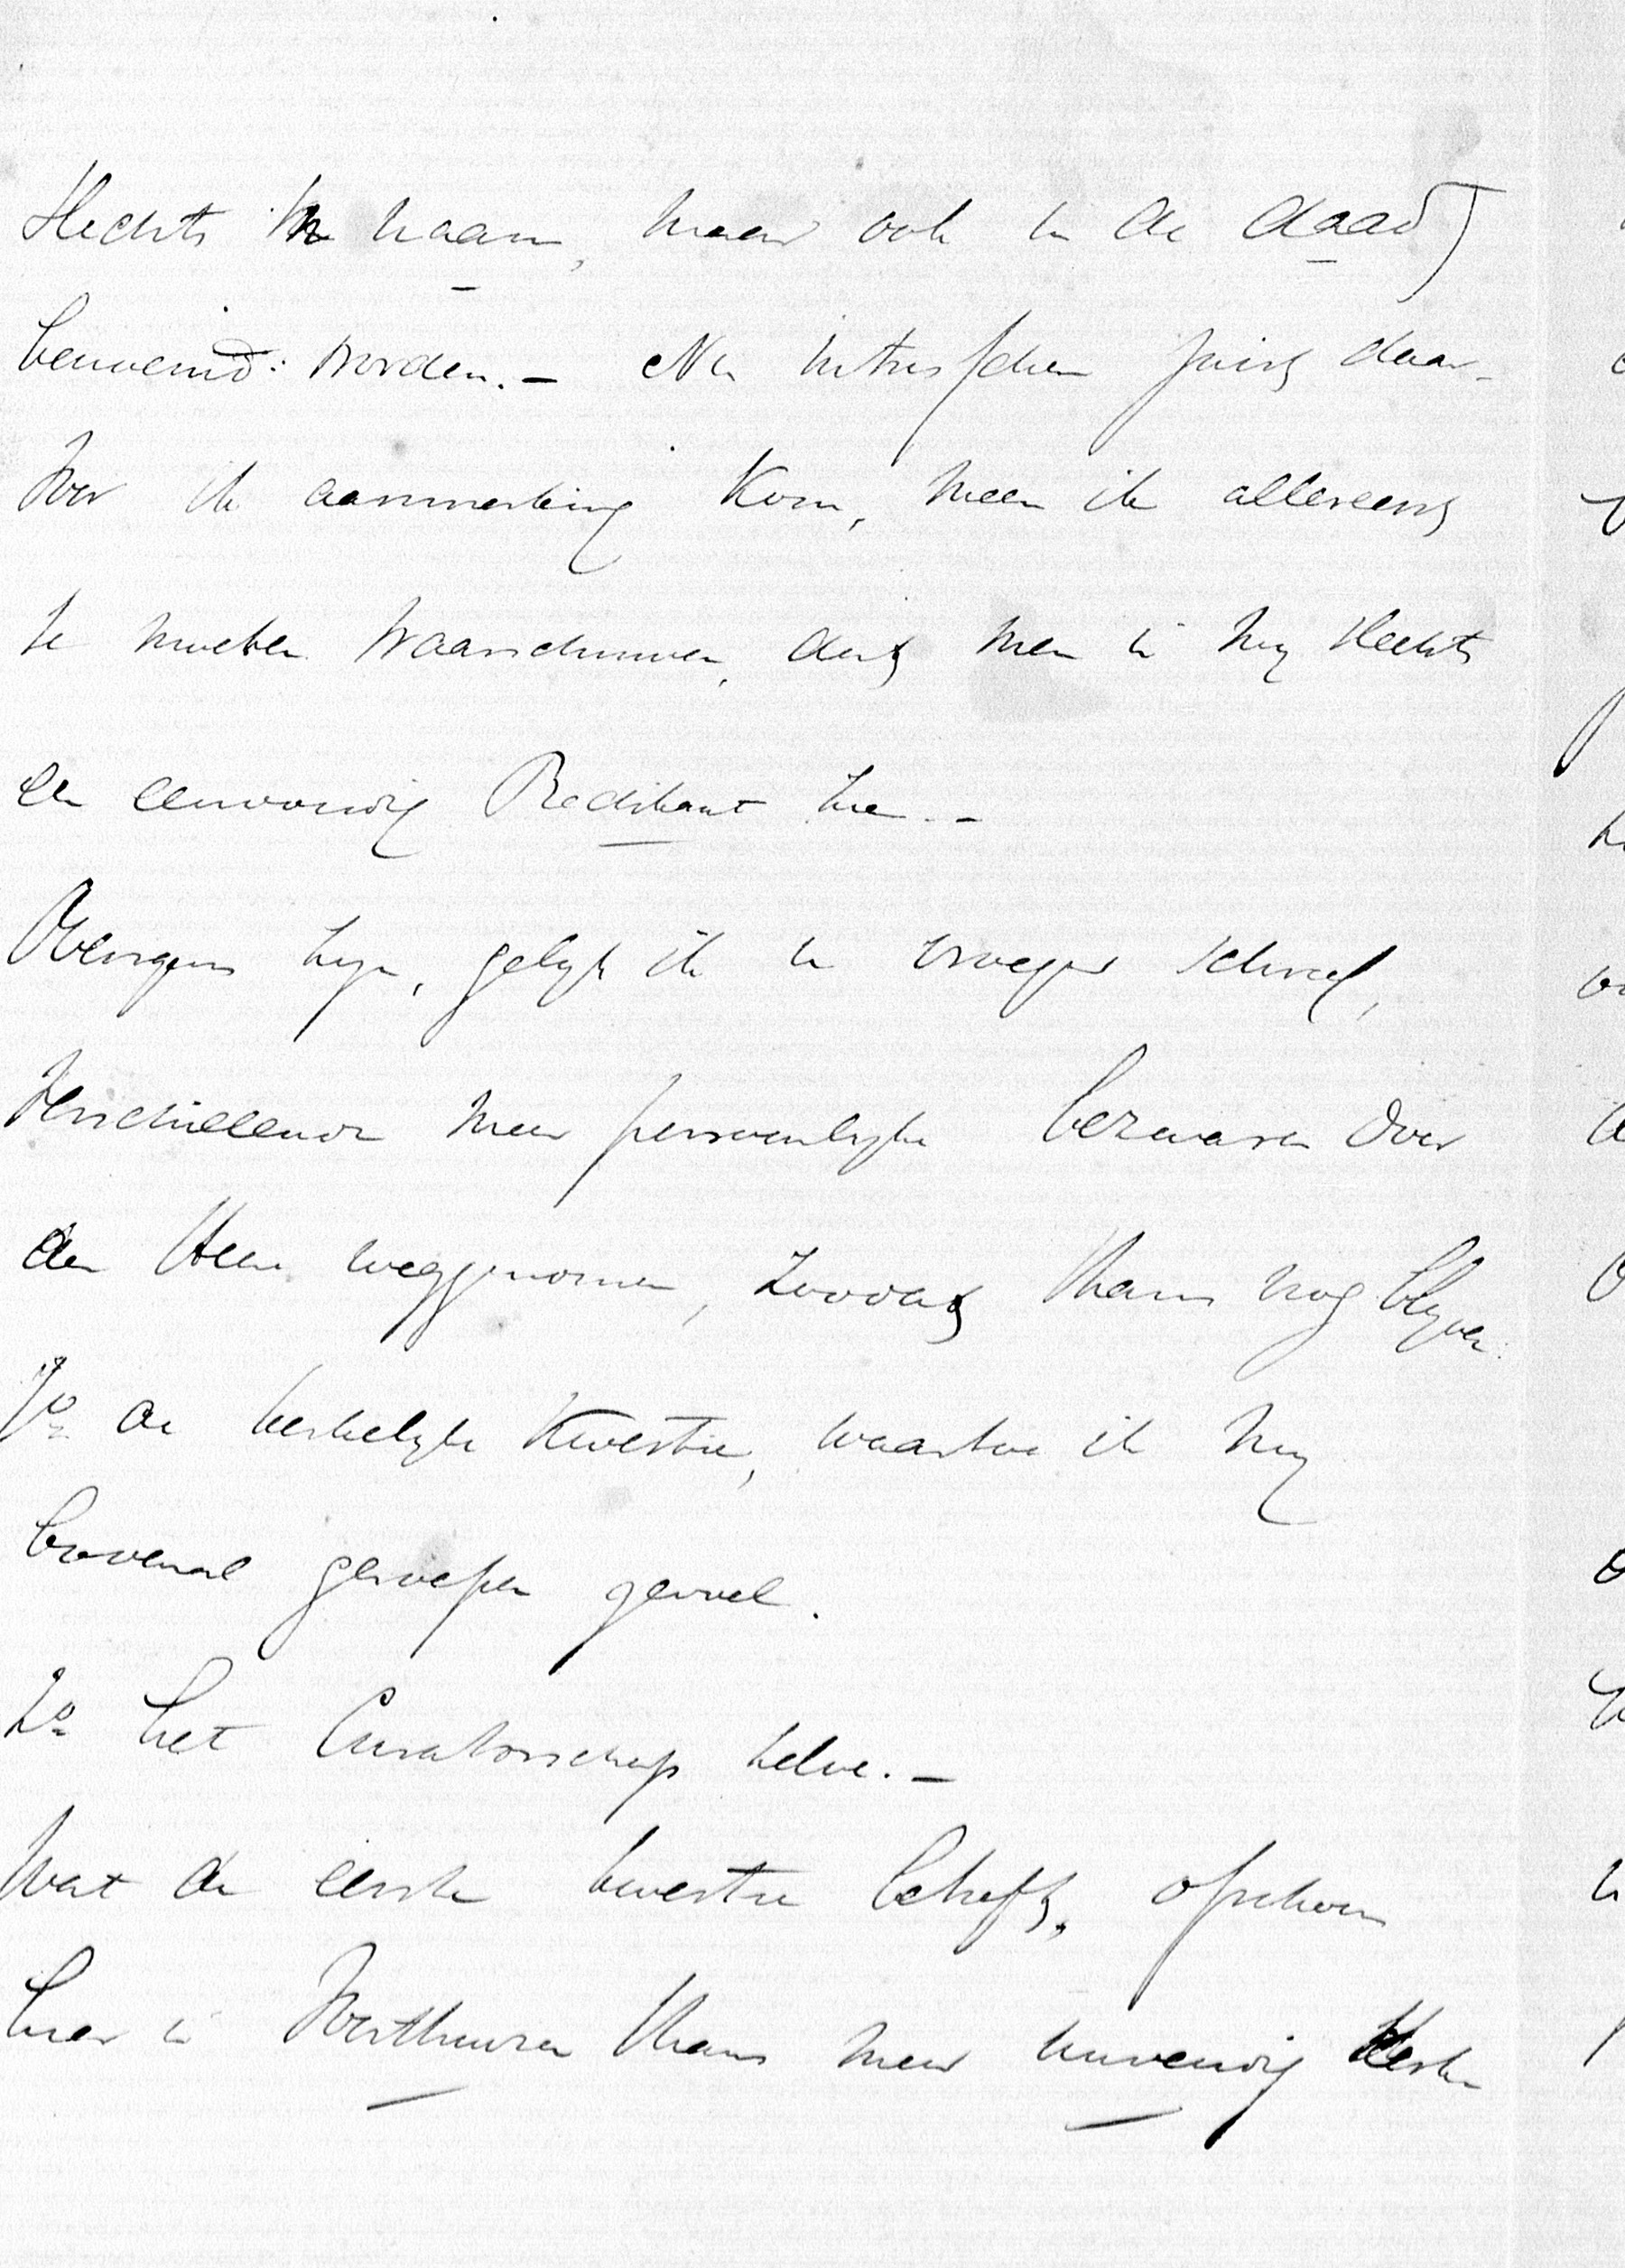 slechts in naam, maar ook in de daad)
benoemd: worden. – Nu intusschen juist daar-
voor in aanmerking kom, meen ik allereerst
te moeten waarschuwen, dat men in my slechts
een eenvoudig Predikant zie. –
Overigens zyn, gelyk ik U vroeger schreef,
verschillende meer persoonlyke bezwaren door
den Heer weggenomen, zoodat thans nog blyven:
1º de kerkelyke kwestie, waartoe ik my
bovenal geroepen gevoel.
2º het Curatorschap zelve. –
Wat de eerste kwestie betreft, ofschoon
hier in thans meer inwendig